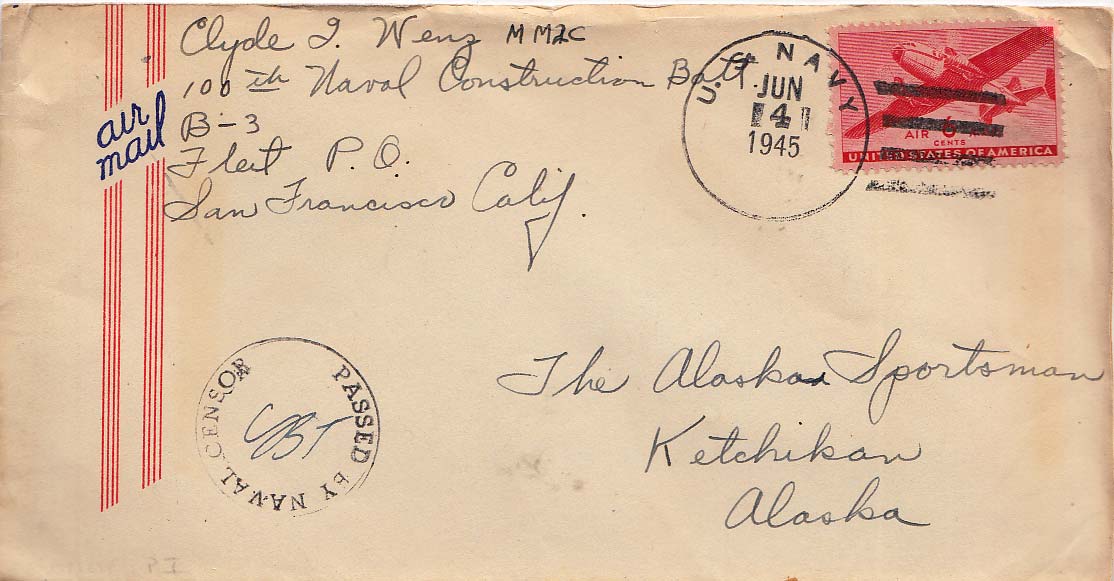 Clyde I. Wenz MM2C
100th Naval Construction Batt.
B-3
Fleet P.O.
San Francisco Calif.
air
mail
U.S. NAVY
JUN
4
1945
AIR 6
CENTS
UNITED STATES OF AMERICA
PASSED BY NAVAL CENSOR
The Alaska Sportsman
Ketchikan
Alaska